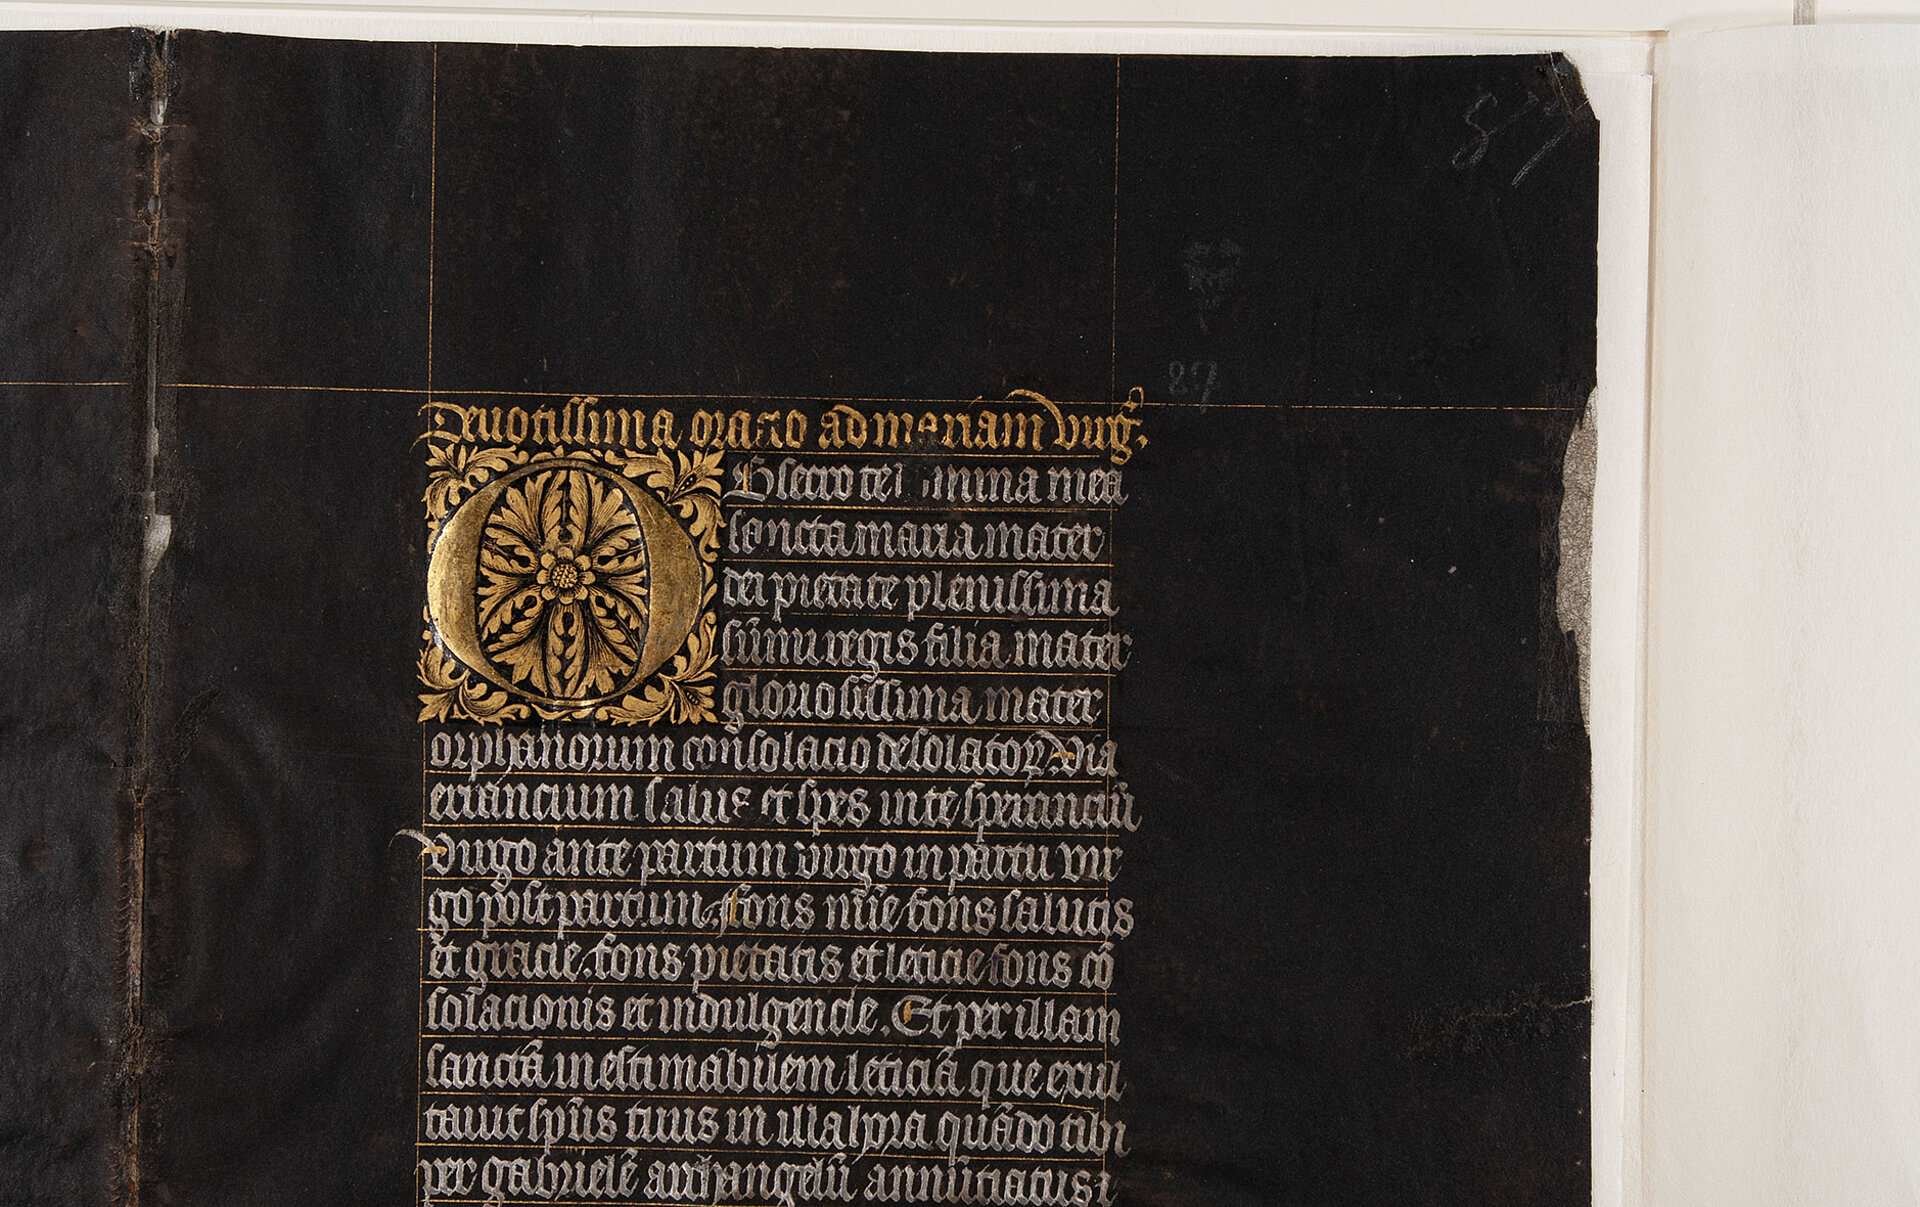 Deuotissima oracio ad mariam virg̃.
Obsecro te domina mea
sancta maria mater
dei pietate plenissima
sũmi regis filia mater
gloriosissima mater
orphanorum consolacio desolatoꝝ. Via
errancium salus et spes in te speranciũ
Virgo ante partum virgo in partu vir
go post partum. Fons mĩe fons salutis
et gracie. fons pietatis et leticie fons cõ
solacionis et indulgencie. Et per illam
sanctã inestimabilem leticiã que exul
tauit sp̃us tuus in illa hora quãdo tibi
per gabrielẽ archangelũ annũtiatus ⁊
27